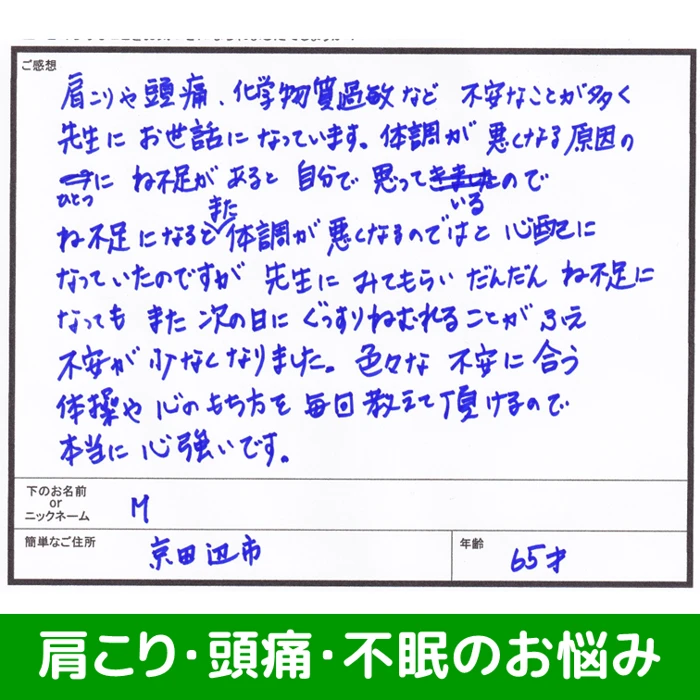 ご感想
肩こりや頭痛、化学物質過敏など 不安なことが多く
先生に お世話に なっています。体調が 悪くなる原因の
ひとつに ね不足が あると 自分で 思っているので
ね不足になるとまた体調が悪くなるのではと 心配に
なっていたのですが 先生に みてもらい だんだん ね不足に
なっても また 次の日に ぐっすりねむれることが ふえ
不安が 少なくなりました。色々な 不安に 合う
体操や 心のもち方を 毎回 教えて頂けるので
本当に 心強いです。
下のお名前
or
ニックネーム
M
簡単なご住所
京田辺市
年齢
65才
肩こり・頭痛・不眠のお悩み